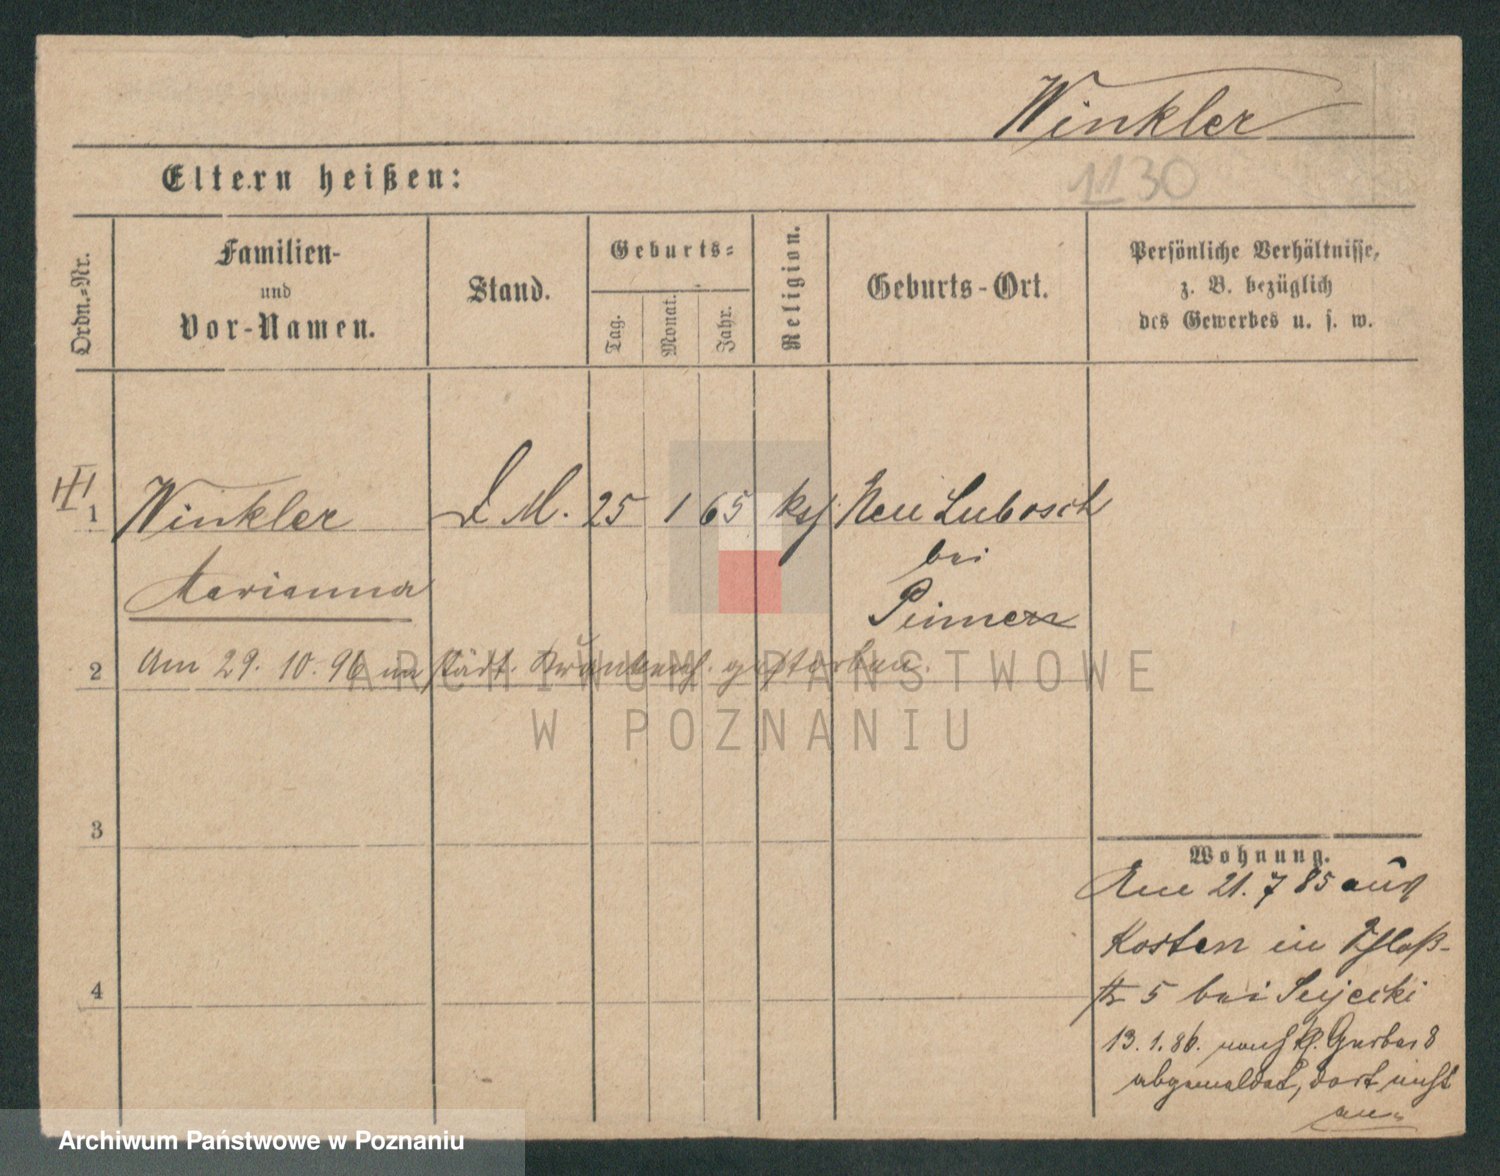 Winkler
1130
Eltern heißen:
Ordn.-Nr.
Familien-
und
Vor-Namen.
Stand.
Geburts-
Tag.
Monat.
Jahr.
Religion.
Geburts-Ort.
Persönliche Verhältnisse,
z. B. bezüglich
des Gewerbes u. s. w.
1 Winkler D. M. 25 1 65 kth Neu Lubosch
Marianna
bei
Pinne
2 Am 29. 10. 96 im städt. Krankenh. gestorben.
3
4
Wohnung.
Am 21. 7 85 auf
Kosten in Schloß-
str 5 bei
13. 1. 86. nach Kl. Gerber 8
abgemeldet, dort nicht
an
ARCHIWUM PAŃSTWOWE
W POZNANIU
Archiwum Państwowe w Poznaniu